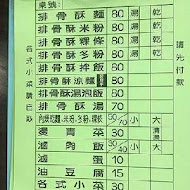 桌號:
排骨酥麵 80 湯 乾
排骨酥米粉 80 湯 乾
排骨酥冬粉 80 湯 乾
排骨酥粄條 80 湯 乾
排骨酥拌飯 80
排骨酥涼麵 80
排骨酥湯泡飯 80
排骨酥湯 70
小 大
燙青菜 30
滷肉飯 30/40 小 大
滷蛋 10
油豆腐 15
各式小菜
請先付款
各式小菜請自取